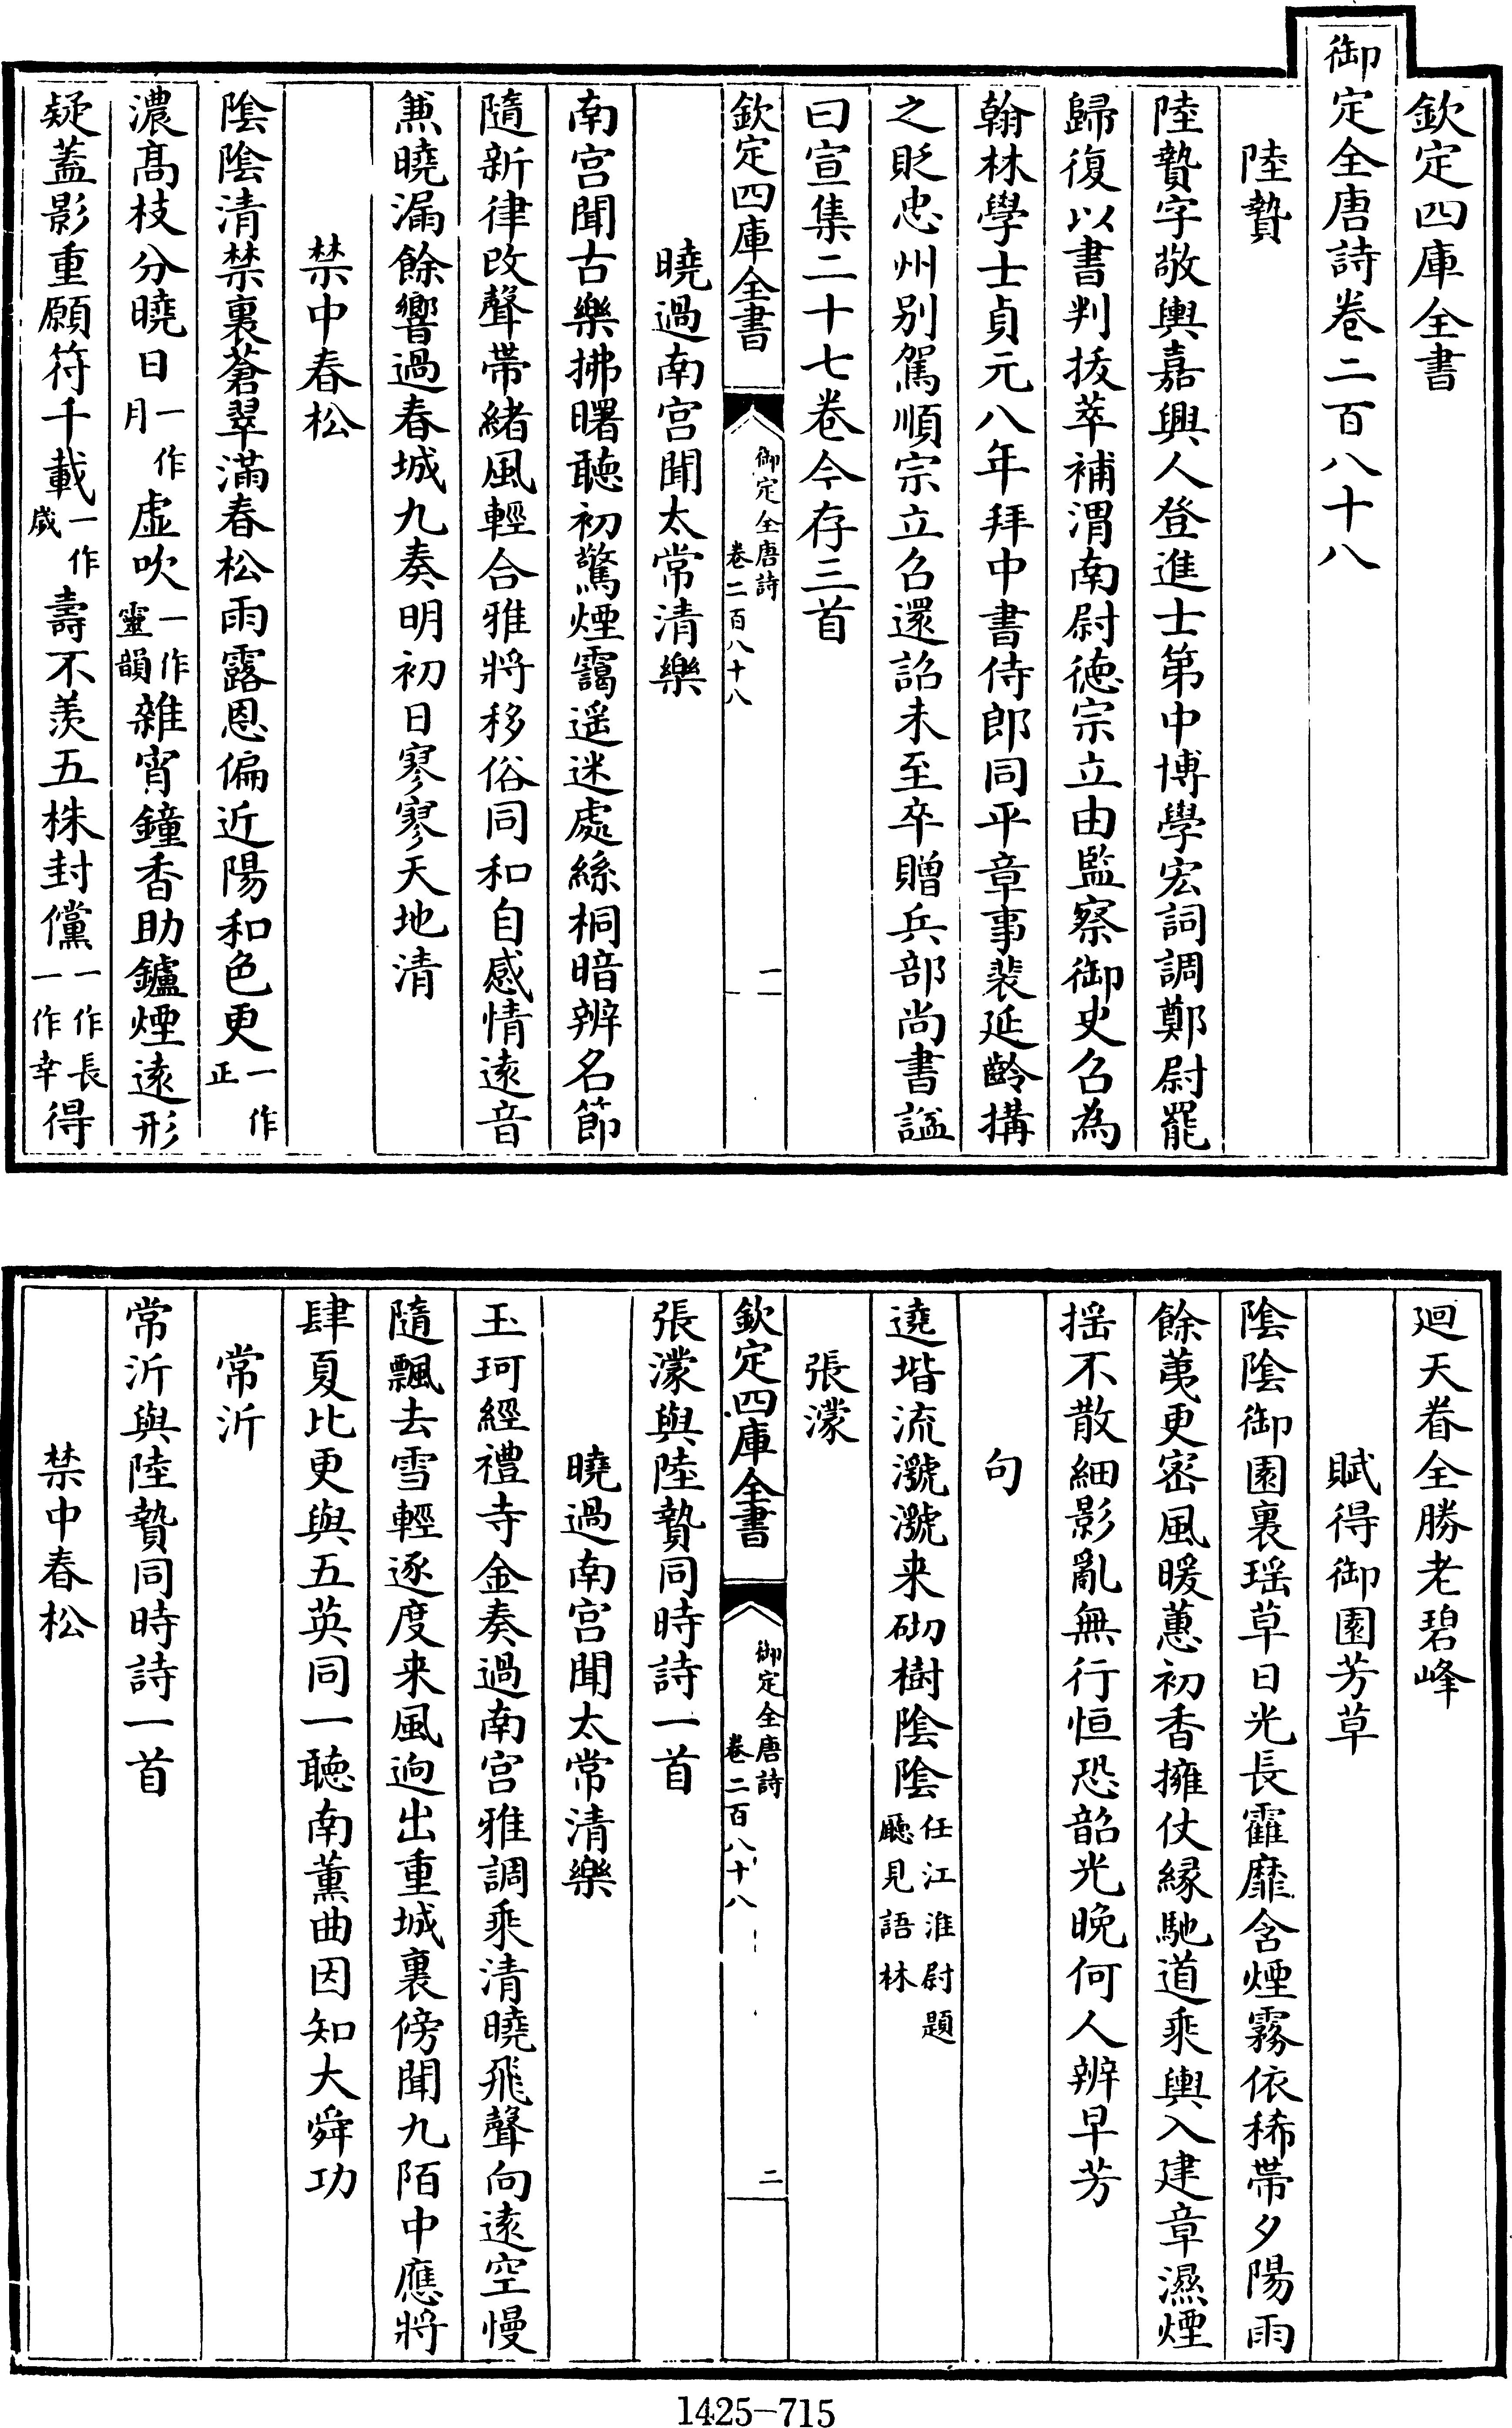 欽定四庫全書
御定全唐詩卷二百八十八
陸贄
陸贄字敬輿嘉興人登進士第中博學宏詞調鄭尉罷
歸復以書判拔萃補渭南尉徳宗立由監察御史召為
翰林學士貞元八年拜中書侍郎同平章事裴延齡搆
之貶忠州别駕順宗立召還詔未至卒贈兵部尚書諡
曰宣集二十七卷今存三首
欽定四庫全書
御定全唐詩
卷二百八十八
一
曉過南宫聞太常清樂
南宫聞古樂拂曙聴初驚煙靄遥迷處絲桐暗辨名節
隨新律改聲帶緒風輕合雅將移俗同和自感情逺音
兼曉漏餘響過春城九奏明初日寥寥天地清
禁中春松
隂隂清禁裏蒼翠滿春松雨露恩偏近陽和色更一作正
濃髙枝分曉日一作月虚吹一作靈韻雜宵鐘香助鑪煙逺形
疑葢影重願符千載一作歲壽不羡五株封儻一作長一作幸得
迴天眷全勝老碧峰
賦得御園芳草
隂隂御園裏瑶草日光長靃靡含煙霧依稀帶夕陽雨
餘荑更密風暖蕙初香擁仗縁馳道乘輿入建章濕煙
揺不散細影亂無行恒恐韶光晚何人辨早芳
句
遶堦流㶁㶁来砌樹隂隂任江淮尉題廳見語林
張濛
欽定四庫全書
御定全唐詩
卷二百八十八
二
張濛與陸贄同時詩一首
曉過南宫聞太常清樂
玉珂經禮寺金奏過南宫雅調乘清曉飛聲向逺空慢
隨飄去雪輕逐度来風迥出重城裏傍聞九陌中應將
肆夏比更與五英同一聴南薰曲因知大舜功
常沂
常沂與陸贄同時詩一首
禁中春松
1425-715